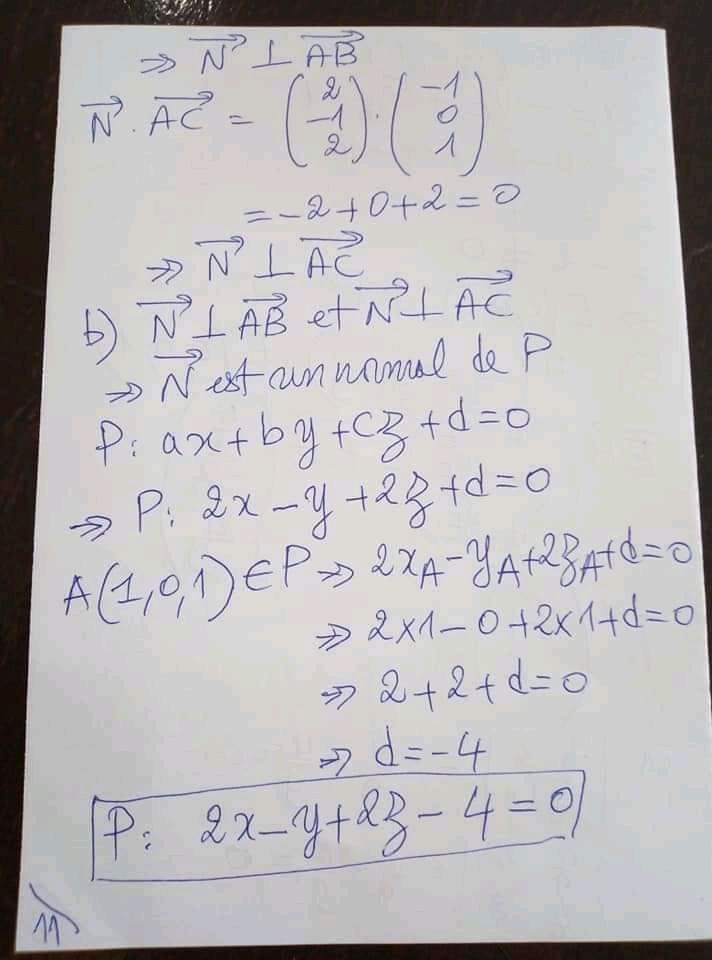 ⇒ N⃗ ⊥ AB⃗
N⃗ . AC⃗ = (2 -1 2) . (-1 0 1)
= -2 + 0 + 2 = 0
⇒ N⃗ ⊥ AC⃗
b) N⃗ ⊥ AB⃗ et N⃗ ⊥ AC⃗
⇒ N⃗ est un normal de P
P: ax + by + cz + d = 0
⇒ P: 2x - y + 2z + d = 0
A(1,0,1) ∈ P ⇒ 2x_A - y_A + 2z_A + d = 0
⇒ 2×1 - 0 + 2×1 + d = 0
⇒ 2 + 2 + d = 0
⇒ d = -4
P: 2x - y + 2z - 4 = 0
11